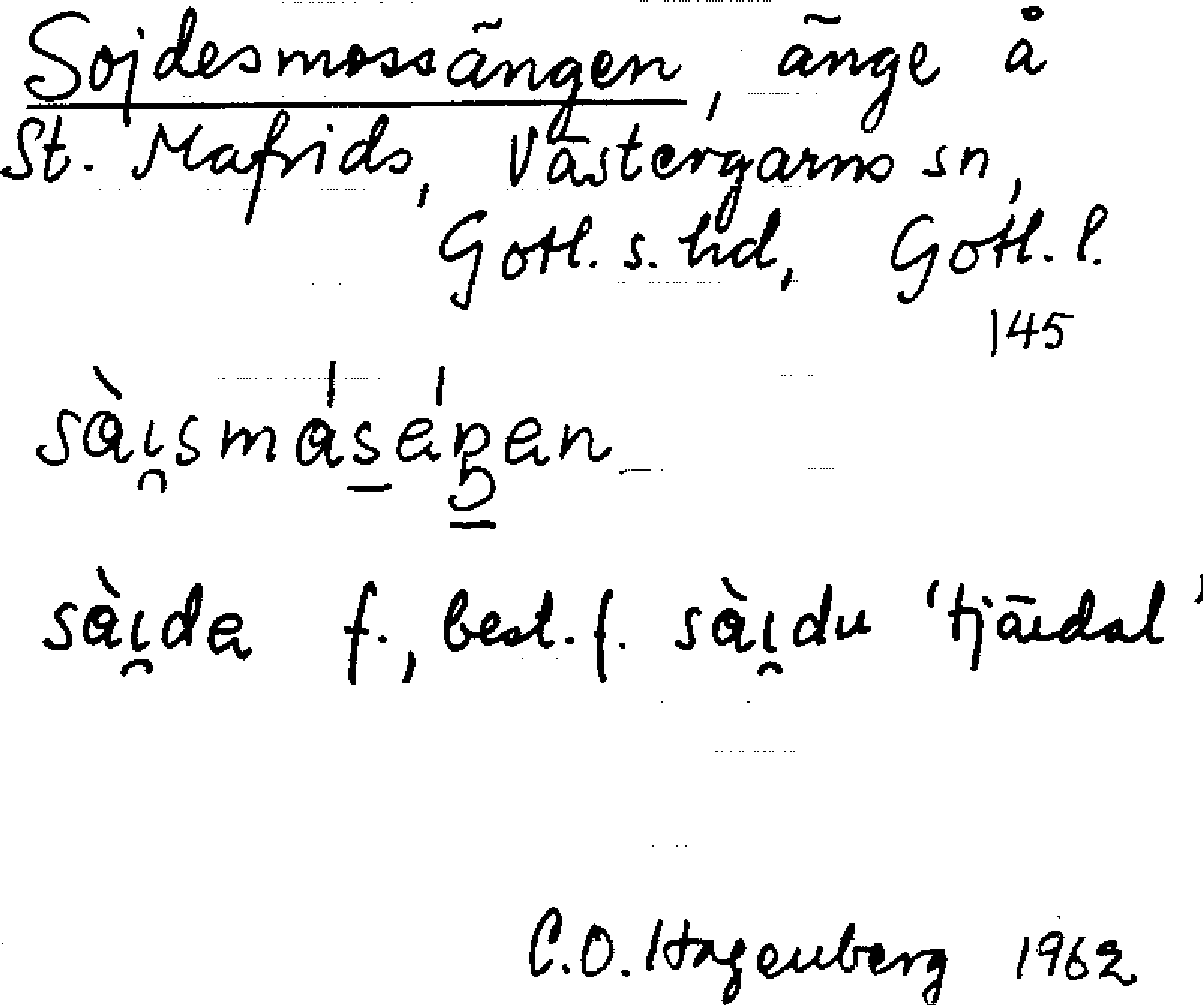 Sojdesmossängen, änge å
St. Mafrids, Västergarns sn,
Gotl. s. hd, Gotl. l.
145
sàı̯smásáŋan
sàı̯da f., best. f. sàı̯du 'tjärdal'
C.O. Hagenberg 1962